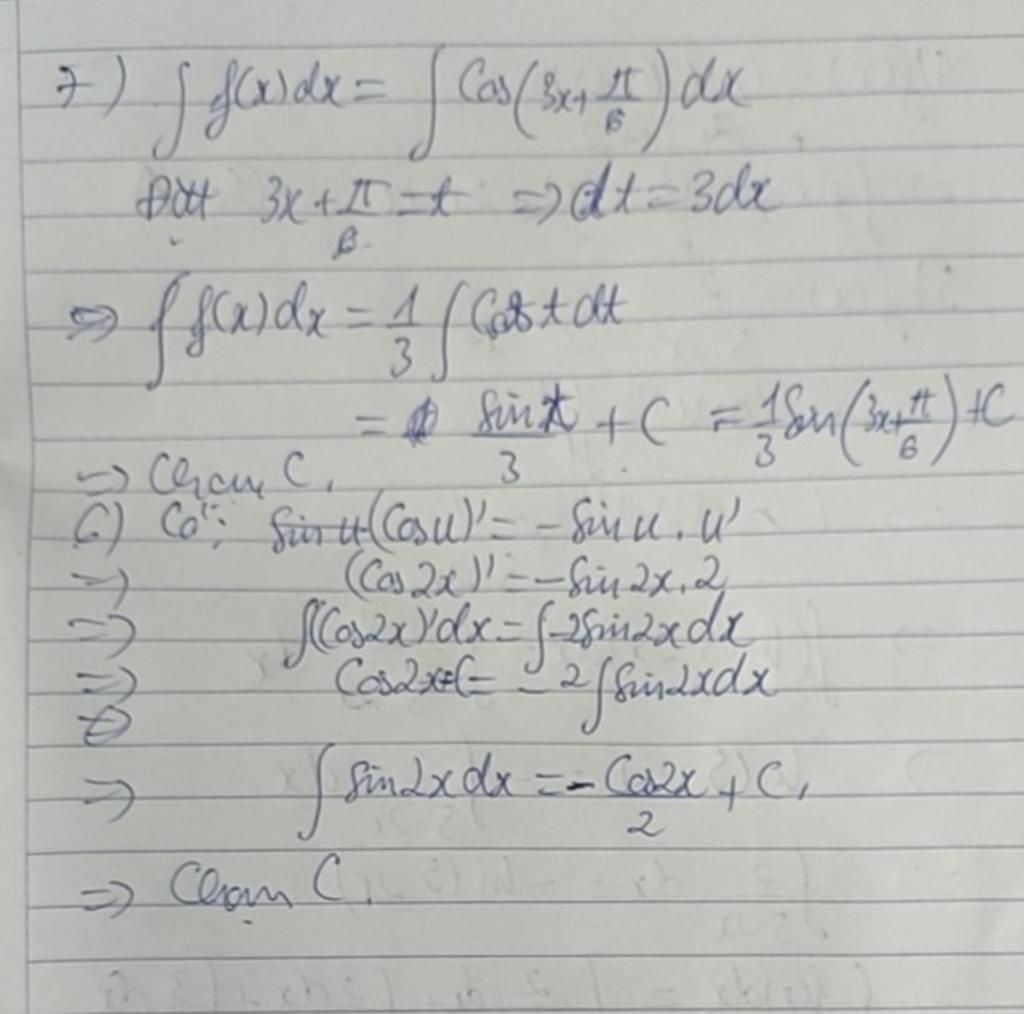 7) ∫ f(x)dx = ∫ Cos(3x+π/6) dx
Đặt 3x+π/6 = t => dt = 3dx
=> ∫ f(x) dx = 1/3 ∫ Cos t dt
= sin t/3 + C = 1/3 Sin(3x+π/6) + C
=> Chọn C.
6) Có: (Cos u)' = -Sin u . u'
=> (Cos 2x)' = -Sin 2x . 2
=> ∫(Cos2x)'dx = ∫-2Sin2x dx
=> Cos2x+C = -2∫Sin2xdx
=> ∫ Sin2x dx = -Cos2x/2 + C.
=> Chọn C.